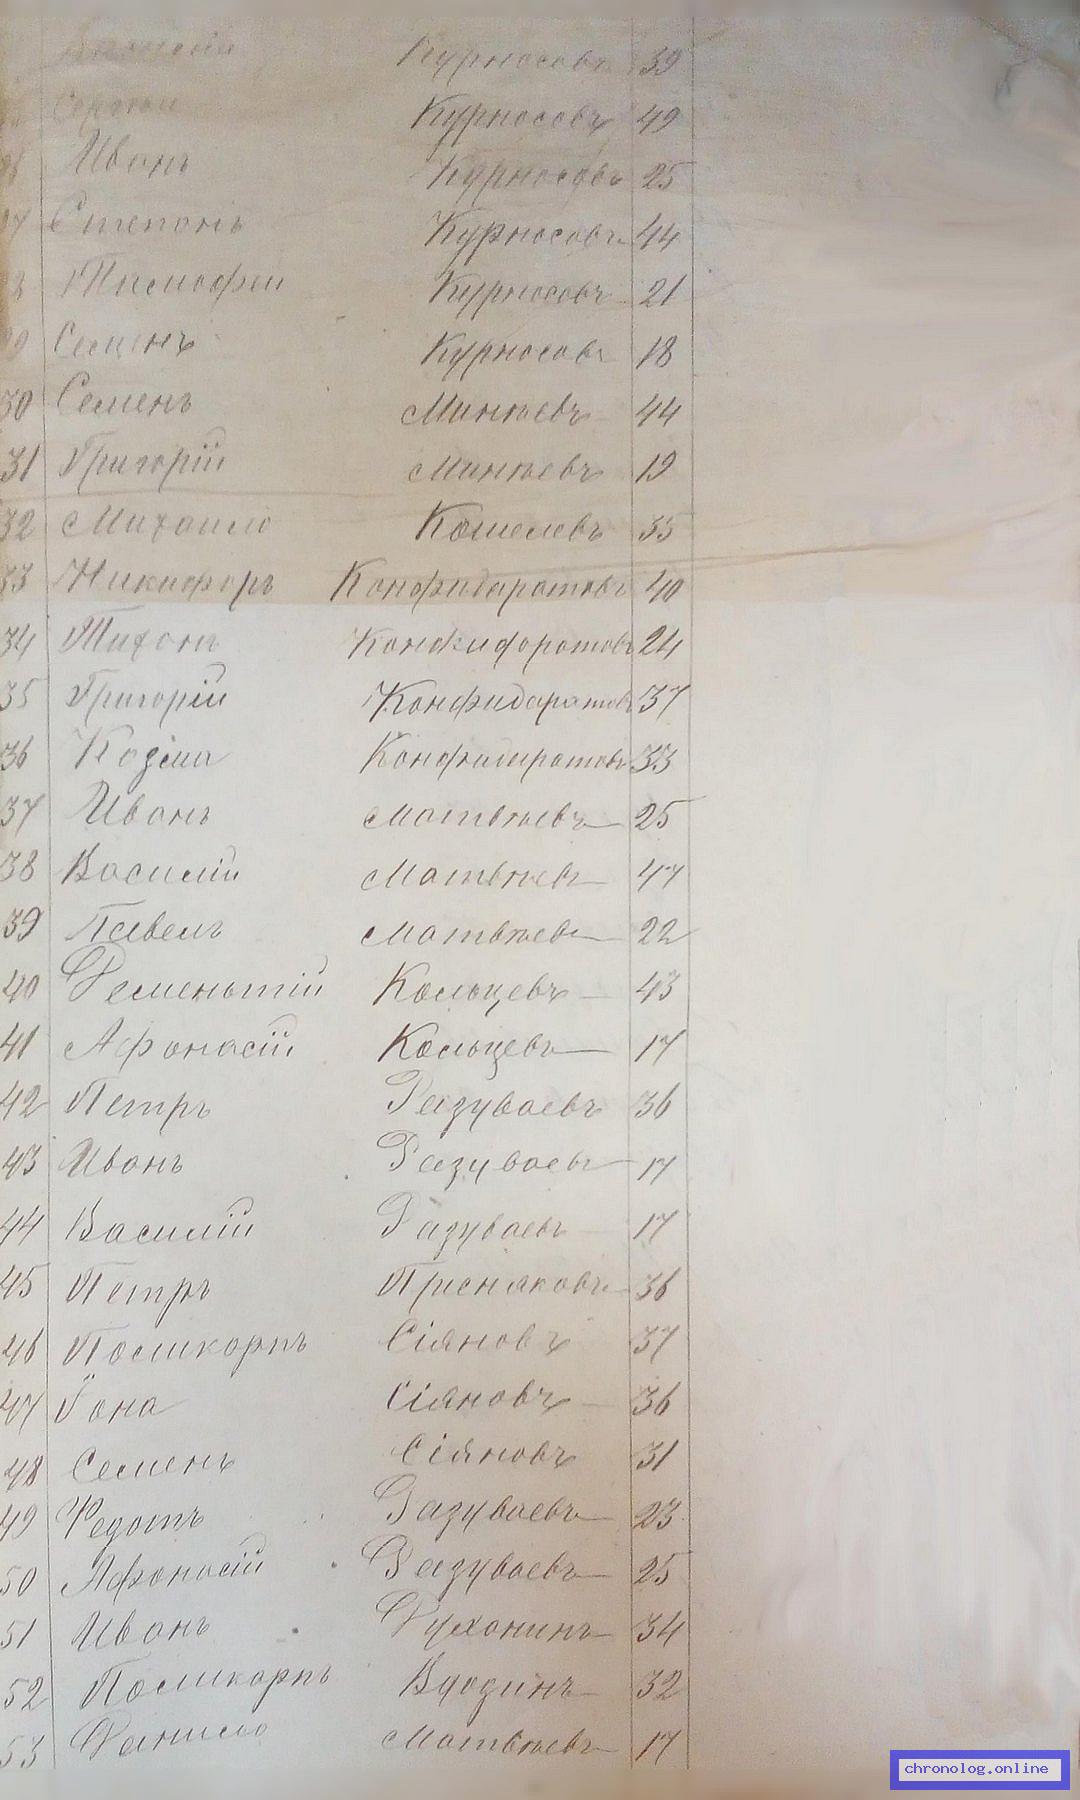 Курносовъ 39
Сергѣй Курносовъ 49
Иванъ Курносовъ 25
Степанъ Курносовъ 44
Тимофей Курносовъ 21
Семенъ Курносовъ 18
30 Семенъ Минѣевъ 44
31 Григорій Минѣевъ 19
32 Михаило Кошелевъ 35
33 Никифоръ Конфидаратовъ 40
34 Тихонъ Конфидоротовъ 24
35 Григорій Конфидаратовъ 37
36 Козма Конфидиратовъ 33
37 Иванъ Матвѣевъ 25
38 Василій Матвѣевъ 47
39 Павелъ Матвѣевъ 22
40 Дементій Кольцевъ 43
41 Афонасій Кольцевъ 17
42 Петръ Разуваевъ 36
43 Иванъ Разуваевъ 17
44 Василій Разуваевъ 17
45 Петръ Приснаковъ 36
46 Поликарпъ Сіяновъ 37
47 Іона Сіяновъ 36
48 Семенъ Сіяновъ 31
49 Федотъ Разуваевъ 23
50 Афонасій Разуваевъ 25
51 Иванъ Духонинъ 34
52 Поликарпъ 32
53 Данило Матвѣевъ 17
chronolog.online